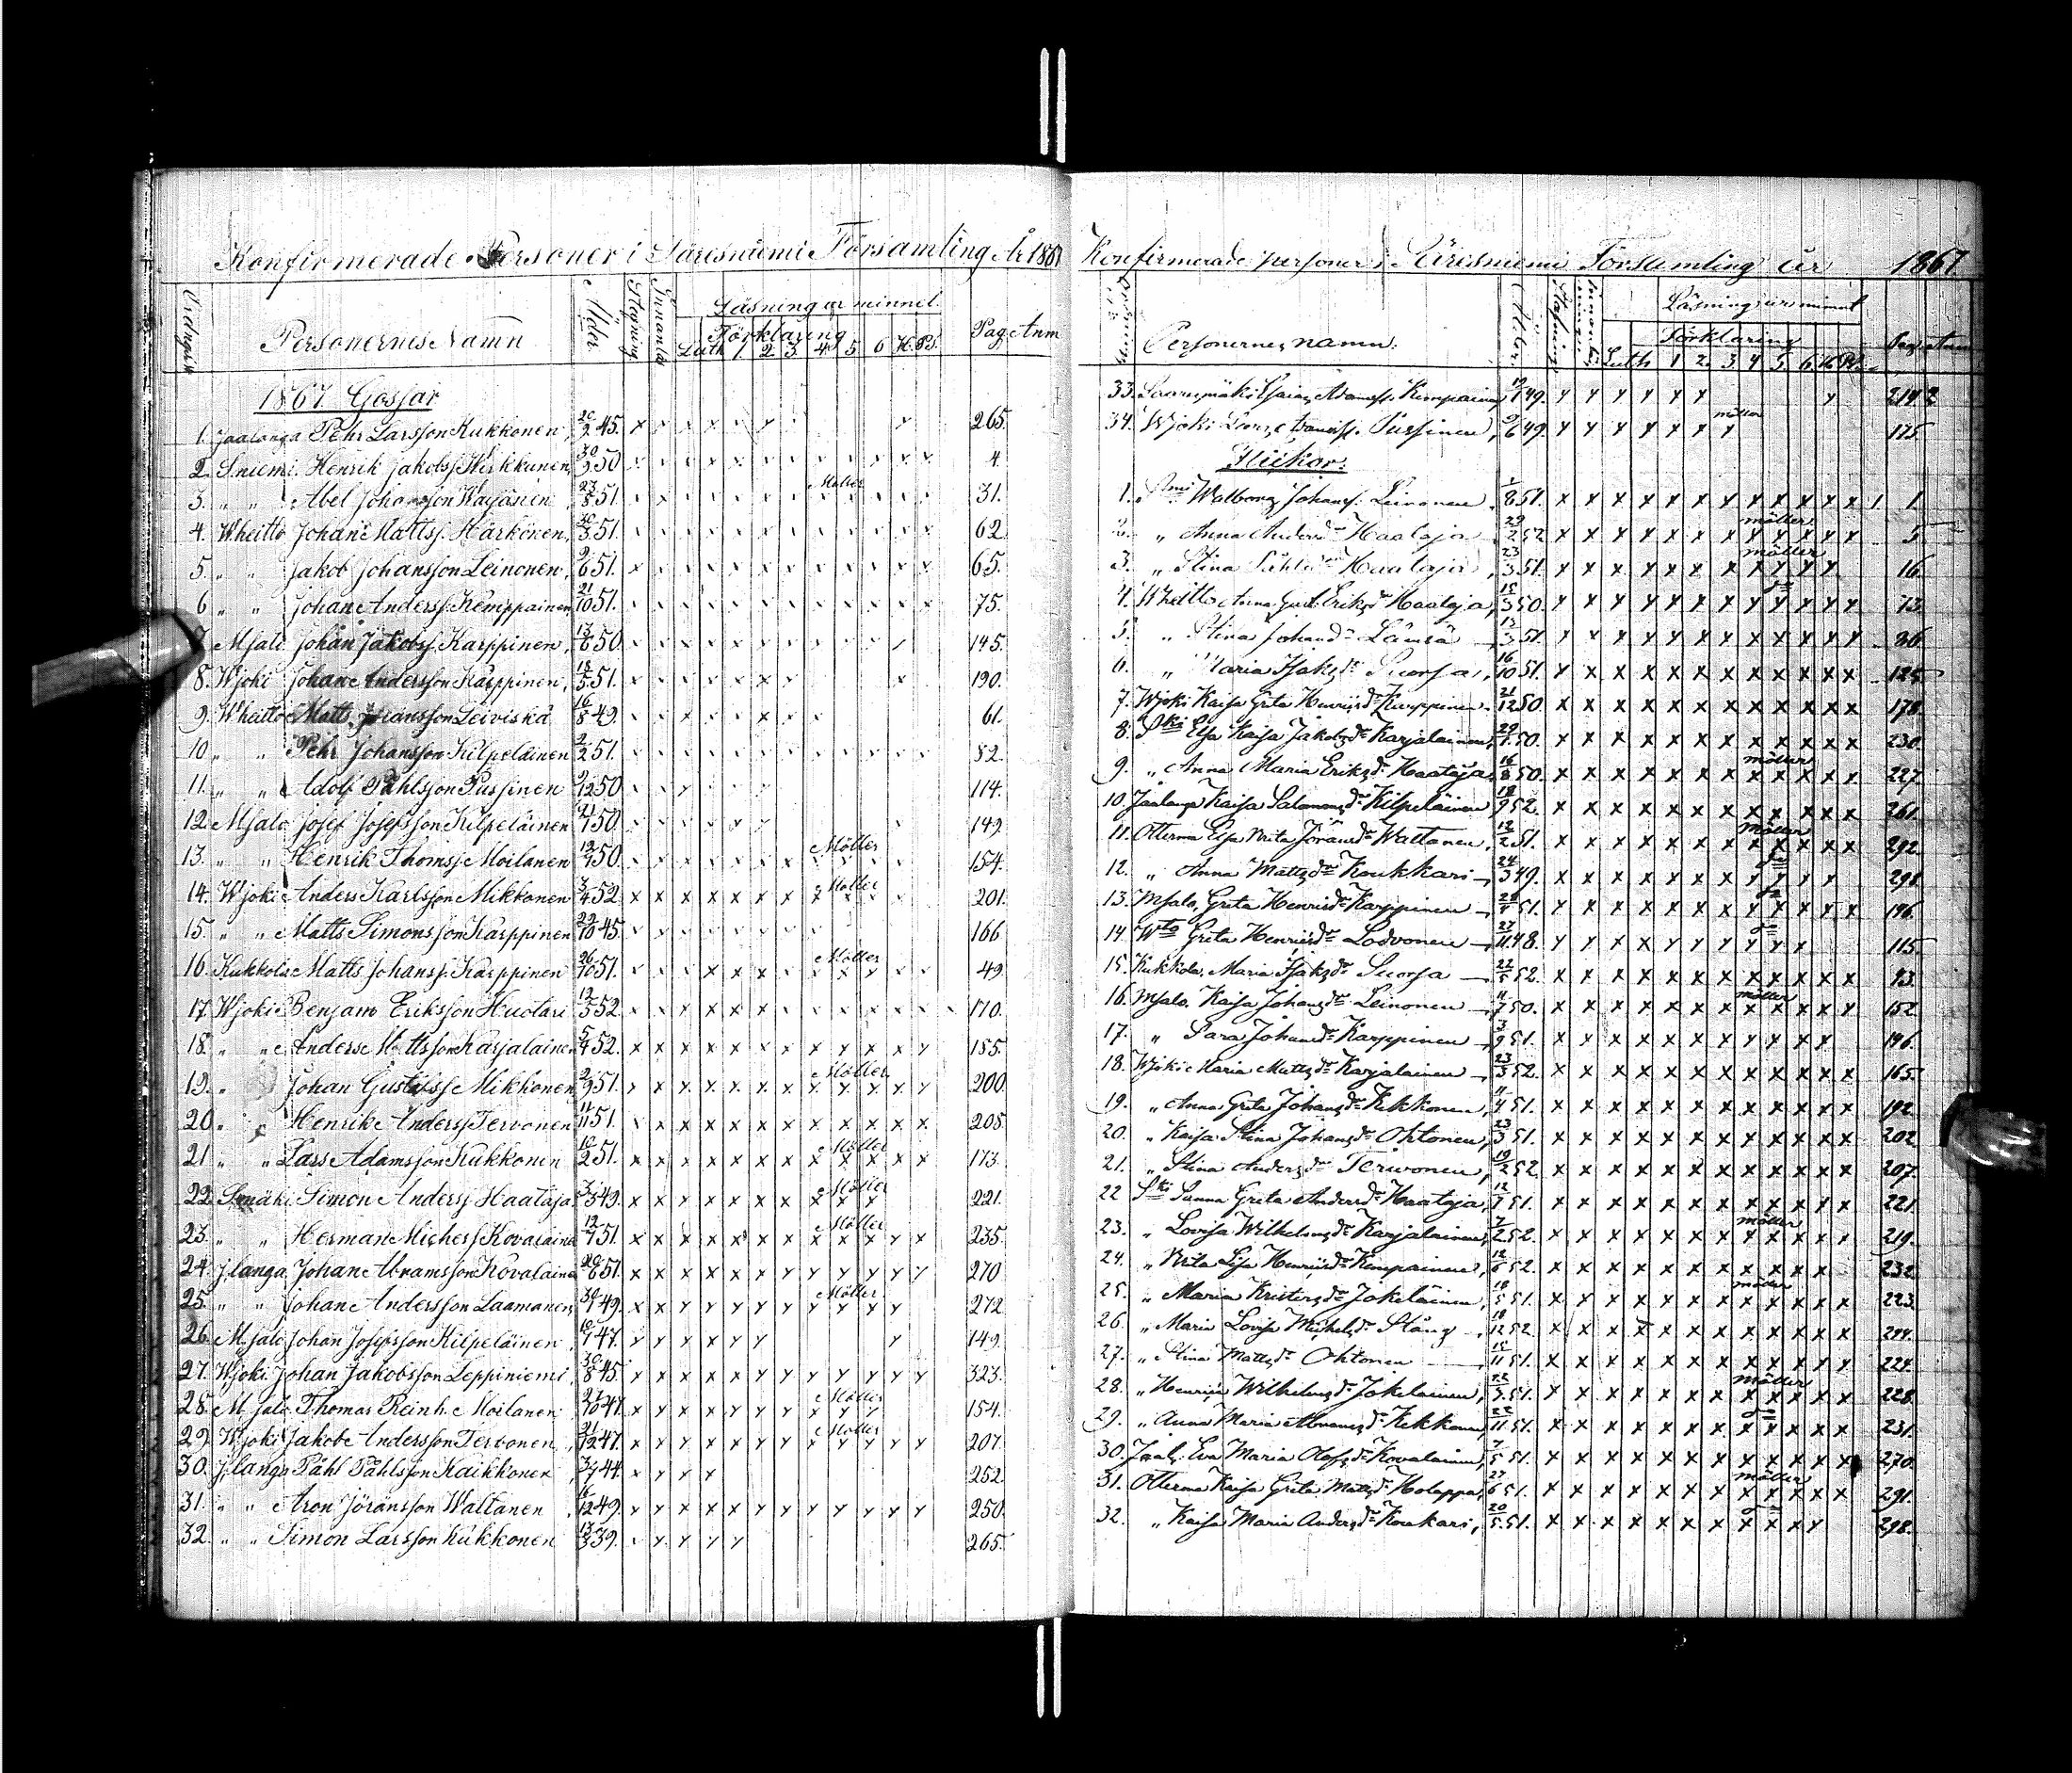 Konfirmerade Personer i Säresniemi Församling År 1867
Ordnings
Personernes Namn
Ålder
Stafning
Innanläs
Läsning ur minnet
Förklaring
Luth 1 2 3 4 5 6 H. Ps.
Pag. Anm
1867 Gossar
1. Jaalanga Pehr Larsson Kukkonen, 20/2 45. 265.
2. S.niemi Henrik Jakobss Kirkkunen, 30/3 50 4.
3. " " Abel Johansson Wäyänen 23/8 51. Möller 31.
4. Wheitto Johan Mattss. Härkönen, 30/3 51. 62
5. " " Jakob Johansson Leinonen, 9/6 51. 65.
6 " " Johan Anderss. Kemppainen, 21/10 51. 75.
7 Msalo Johan Jakobss. Karppinen, 13/6 50. 145.
8. Wjoki Johan Andersson Karppinen, 18/5 51. 190.
9. Wheitto Matts Jöransson Leiviskä 16/8 49. 61.
10. " " Pehr Johansson Kilpeläinen 2/2 51. 82.
11. " " Adolf Påhlsson Pussinen 9/12 50 114.
12. Msalo Josef Josefsson Kilpeläinen 21/7 50. 149.
13. " " Henrik Thomss Moilanen 12/7 50. Möller 154.
14. Wjoki Anders Karlsson Mikkonen 3/4 52 Möller 201.
15. " " Matts Simonsson Karppinen 22/10 45. 166
16. Kukkola Matts Johanss. Karppinen 26/10 51. Möller 49
17. Wjoki Benjam Eriksson Huotari 12/3 52 170.
18. " " Anders Mattsson Karjalainen 5/4 52. 185.
19. " Johan Gustafss Mikkonen 2/9 51. Möller 200.
20. " " Henrik Anderss Tervonen 11/11 51. 205.
21 " " Lars Adamsson Kukkonen 10/2 51. Möller 173.
22. Smäki Simon Anderss Haataja 3/3 49. Möller 221.
23. " " Herman Michelss Kovalainen 12/7 51. Möller 235.
24. J.langa Johan Abramsson Kovalainen 20/6 51. 270
25. " " Johan Andersson Laamanen, 30/7 49. Möller 272.
26. M.salo Johan Josefsson Kilpeläinen, 10/7 47. 149.
27. Wjoki Johan Jakobsson Leppiniemi, 30/8 45. 323.
28. M.salo Thomas Reinh. Moilanen 27/10 47 Möller 154.
29. Wjoki Jakob Andersson Tervonen, 21/12 47. Möller 207.
30. J.langa Påhl Påhlsson Kaikkonen 3/7 44. 252.
31. " " Aron Jöransson Waltanen, 6/12 49. 250.
32. " " Simon Larsson Kukkonen 13/3 39. 265.
Konfirmerade personer i Säresniemi Församling år 1867
Personernes namn.
Ålder
Stafning
Läsning ur minnet
Förklaring
Luth 1 2 3 4 5 6 H. Ps.
Pag. Anm
33. Saaresmäki Esaias Adamss. Kemppainen, 19/1 49. 242
34. Wjoki Lars Danielss. Pussinen, 9/6 49. möller 175.
Flickor.
1. Sni Walborg Johansd. Leinonen, 1/8 51. 1.
2. " Anna Andersdr Haataja 29/2 52 möller 5
3. " Stina Påhlsdr Haataja, 23/3 51. möller 16.
4. Wheitto Anna Gust. Eriksdr Haataja, 15/3 50. do 73.
5. " Stina Johansdr Länsä 12/3 51. 86.
6. " Maria Isaksdr Suorsa, 16/10 51. 125.
7. Wjoki Kaisa Greta Henriksdr Karppinen 21/12 50. 178.
8. Ski Elsa Kaisa Jakobsdr Karjalainen, 29/1 50. 230.
9. " Anna Maria Eriksdr Haataja 16/8 50. möller 227.
10. Jaalanga Kaisa Salomonsdr Kilpeläinen 18/9 52. 261.
11. Otterma Elsa Brita Jöransdr Waltanen, 12/2 51. möller 292.
12. " Anna Mattsdr Koukkari 24/3 49. do 298.
13. Msalo, Greta Henriksdr Karppinen 28/4 51. do 146.
14. Wto Greta Henriksdr Lodvonen 23/11 48. do 115.
15. Kukkola, Maria Isaksdr Suorsa 22/5 52. 43.
16. Msalo. Kaisa Johansdr Leinonen 11/7 50. möller 152.
17. " Sara Johansdr Karppinen 3/9 51. 146.
18. Wjoki Maria Mattsdr Karjalainen 23/3 52. 165.
19. " Anna Greta Johansdr Kekkonen, 11/4 51. 192.
20. " Kaisa Stina Johansdr Ohtonen, 23/3 51. 202.
21. " Stina Andersdr Tervonen, 19/2 52. 207.
22 Ski Sanna Greta Andersdr Haataja, 12/7 51. 221.
23. " Lovisa Wilhelmsdr Karjalainen, 7/2 52. möller 219.
24. " Brita Lisa Henriksdr Kempainen, 12/6 52. 232.
25. " Maria Kristersdr Jokeläinen, 18/5 51. möller 223.
26. " Maria Lovisa Michelsdr Stång 18/12 52. 244.
27. " Stina Mattsdr Ohtonen 15/11 51. 224.
28. " Henrica Wilhelmsdr Jokelainen, 22/3 51. möller 228.
29. " Anna Maria Abramsdr Kekkonen, 22/11 51. do 231.
30. Jaal. Eva Maria Olofsdr Kovalainen, 7/5 51. 270.
31. Otterma Kaisa Greta Mattsdr Holappa, 27/6 51. möller 291.
32. " Kaisa Maria Andersdr Koukari, 20/5 51. do 298.